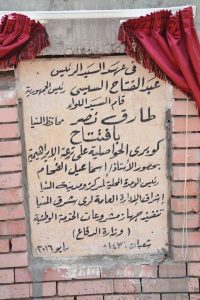 فى عهد السيد الرئيس
عبد الفتاح السيسى رئيس الجمهورية
قام السيد اللواء
طارق نصر محافظ المنيا
بافتتاح
كوبرى الحواصلية على ترعة الإبراهيمية
بحضور الأستاذ/ اسماعيل الفحام
رئيس الوحدة المحلية لمركز ومدينة المنيا
إشراف الإدارة العامة لرى شرق المنيا
تنفيذ جهاز مشروعات الخدمة الوطنية
( وزارة الدفاع )
شعبان ١٤٣٠ هـ مايو ٢٠١٦